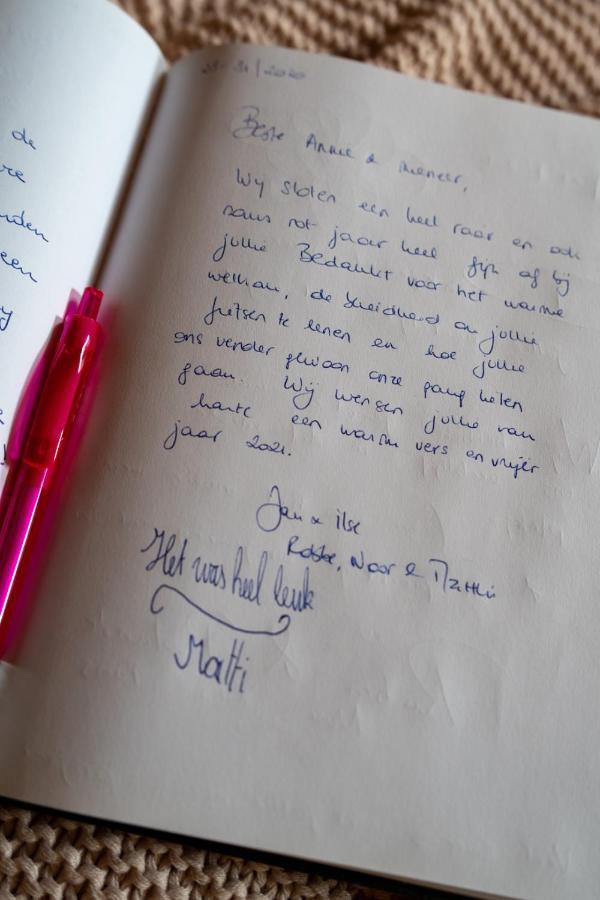 de
een
/2020
Beste Annie & meneer,
Wij sloten een heel raar en ook
soms rot jaar heel fijn af bij
jullie Bedankt voor het warme
welkom, de om jullie
fietsen te lenen en hoe jullie
ons verder gewoon onze gang lieten
gaan. Wij wensen jullie van
harte een warm vers en vrijer
jaar 2021.
Jan & Ilse
Robbe, Noor & Matti
Het was heel leuk
Matti